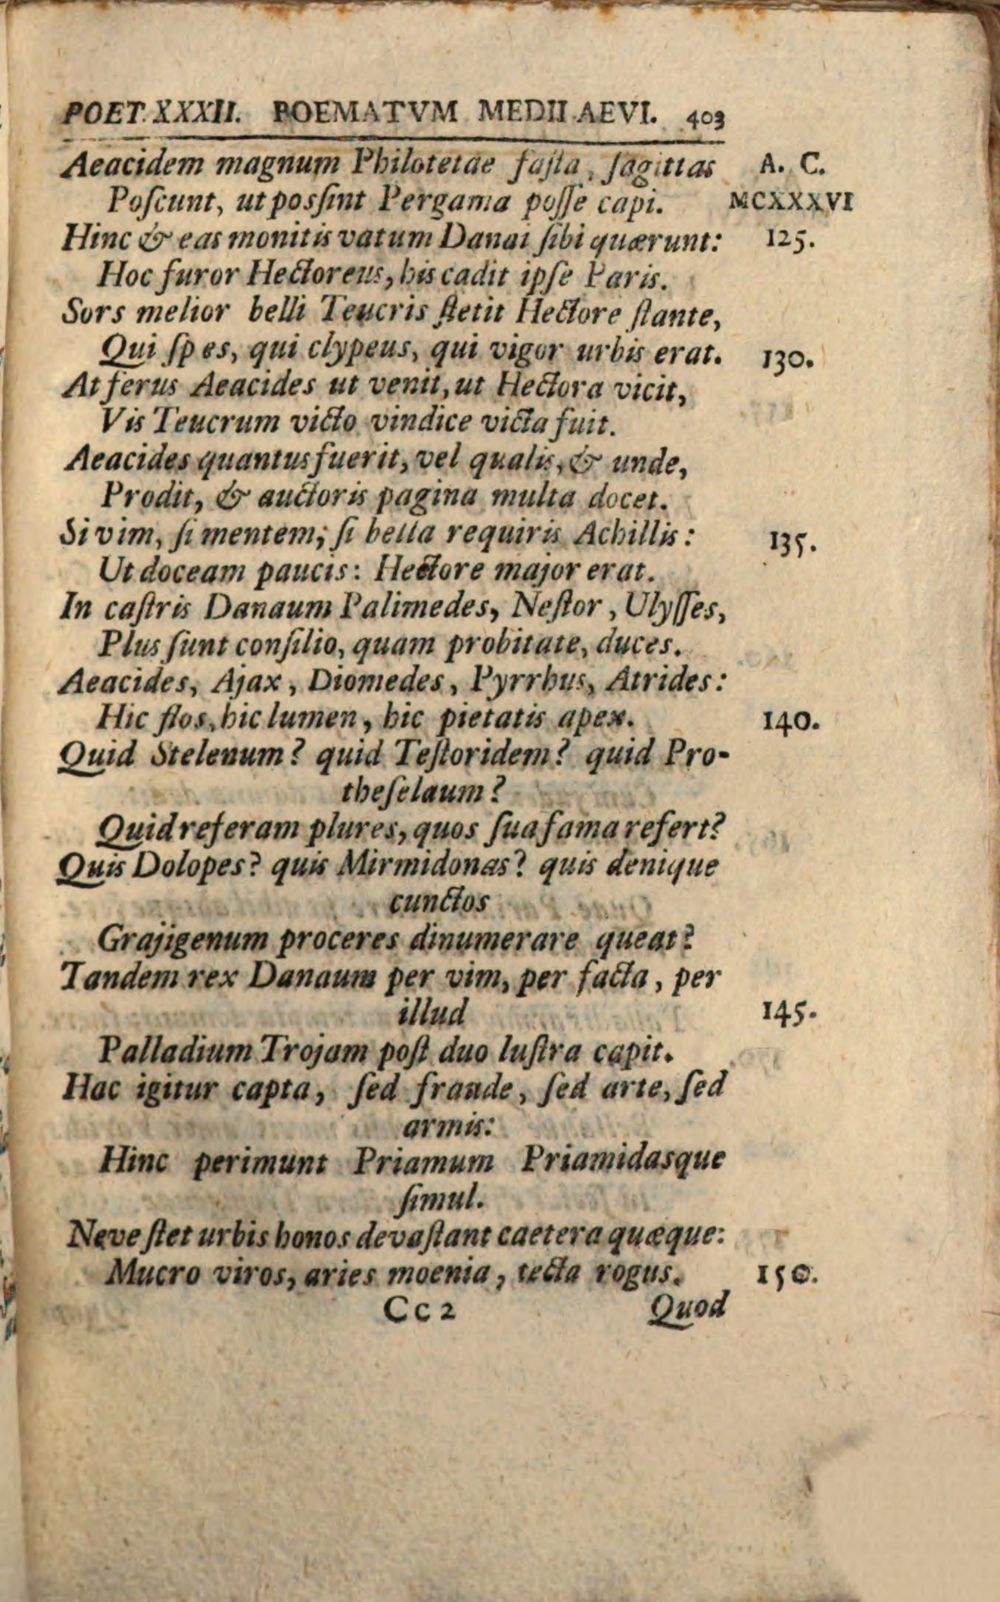 POET. XXXII. POEMATVM MEDII AEVI. 403
Aeacidem magnum Philotetae fasta, sagittas A. C.
Poſcunt, ut posſint Pergama poſſe capi. MCXXXVI
Hinc & eas monitis vatum Danai ſibi quærunt: 125.
Hoc furor Hectoreus, his cadit ipſe Paris.
Sors melior belli Teucris ſtetit Hectore ſtante,
Qui ſpes, qui clypeus, qui vigor urbis erat. 130.
At ferus Aeacides ut venit, ut Hectora vicit,
Vis Teucrum victo vindice victa fuit.
Aeacides quantus fuerit, vel qualis, & unde,
Prodit, & auctoris pagina multa docet.
Si vim, ſi mentem; ſi bella requiris Achillis: 135.
Ut doceam paucis: Hectore major erat.
In caſtris Danaum Palimedes, Neſtor, Ulyſſes,
Plus ſunt conſilio, quam probitate, duces.
Aeacides, Ajax, Diomedes, Pyrrhus, Atrides:
Hic flos, hic lumen, hic pietatis apex. 140.
Quid Stelenum? quid Teſtoridem? quid Pro-
theſelaum?
Quid referam plures, quos ſua fama refert?
Quis Dolopes? quis Mirmidonas? quis denique
cunctos
Grajigenum proceres dinumerare queat?
Tandem rex Danaum per vim, per facta, per
illud 145.
Palladium Trojam poſt duo luſtra capit.
Hac igitur capta, ſed fraude, ſed arte, ſed
armis:
Hinc perimunt Priamum Priamidasque
ſimul.
Neve ſtet urbis honos devaſtant caetera quæque:
Mucro viros, aries moenia, tecta rogus. 150.
Cc 2 Quod